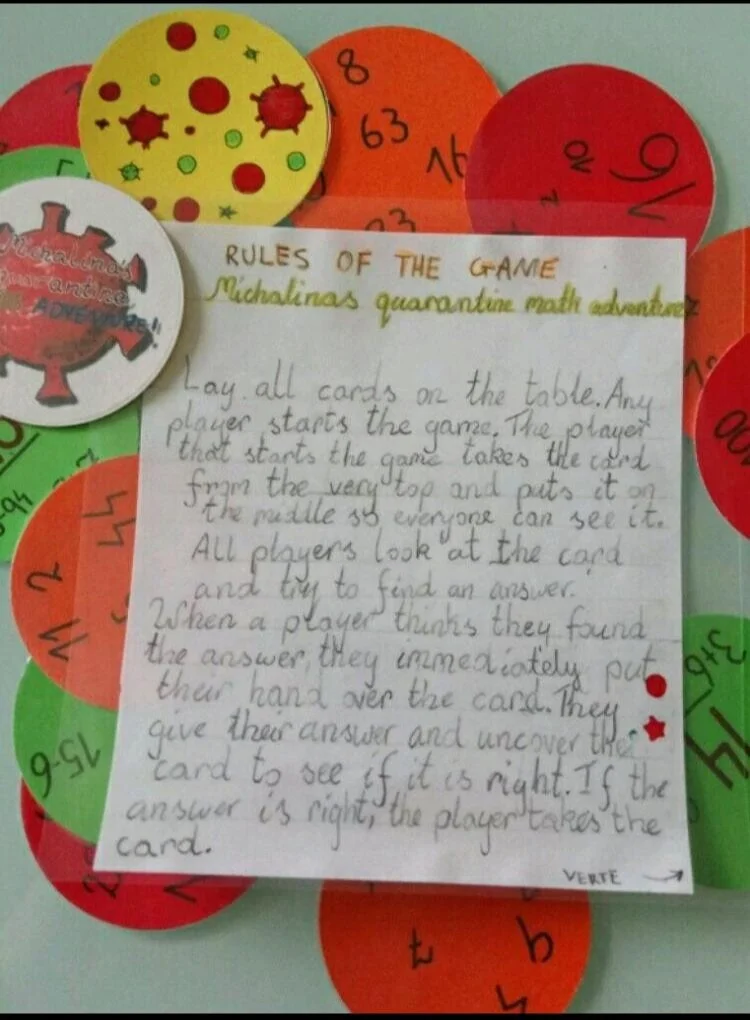 8
63
16
23
Michalina's
quarantine
ADVENTURE!!
RULES OF THE GAME
Michalinas quarantine math adventure
Lay all cards on the table. Any
player starts the game. The player
that starts the game takes the card
from the very top and puts it on
the middle so everyone can see it.
All players look at the card
and try to find an answer.
When a player thinks they found
the answer, they immediately put
their hand over the card. They
give their answer and uncover the
card to see if it is right. If the
answer is right, the player takes the
card.
VERTE →
15-6
3+6
14
2
11
7